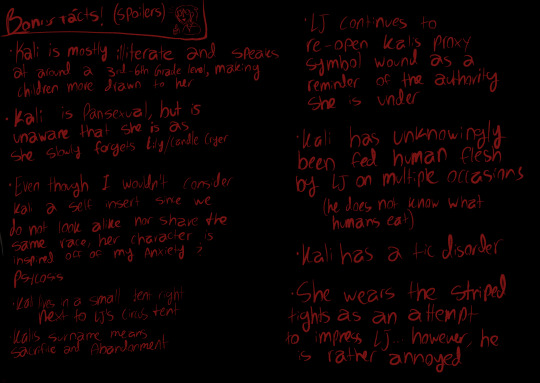 Bonus facts! (spoilers)
·Kali is mostly illiterate and speaks
at around a 3rd-6th Grade level, making
children more drawn to her
·Kali is Pansexual, but is
unaware that she is as
she slowly forgets Lily/Candle
·Even though I wouldn't consider
Kali a self insert since we
do not look alike nor share the
same race, her character is
inspired off of my Anxiety &
Psycoss
·Kali lives in a small tent right
next to LJ's circus tent
Kalis surname means
sacrifice and Abandonment
·LJ continues to
re-open Kalis proxy
symbol wound as a
reminder of the authority
she is under
·Kali has unknowingly
been fed human flesh
by LJ on multiple occasions
(he does not know what
humans eat)
·Kali has a tic disorder
·She wears the striped
tights as an attempt
to impress LJ... however, he
is rather annoyed